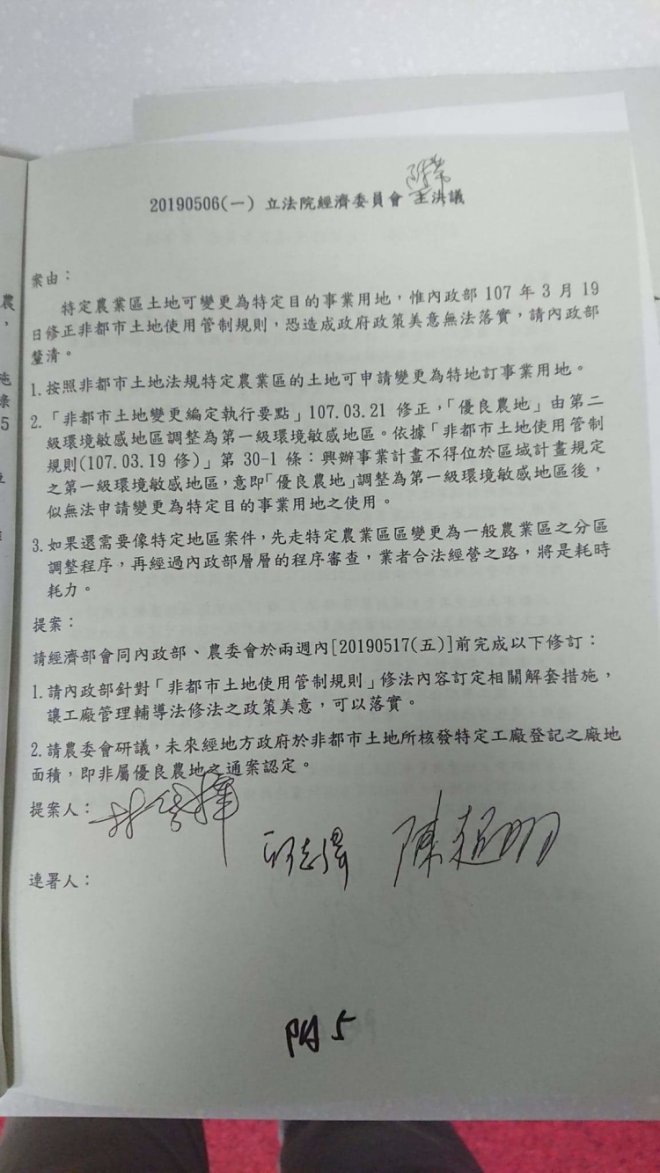 20190506(一) 立法院經濟委員會 主決議
案由：
特定農業區土地可變更為特定目的事業用地，惟內政部 107 年 3 月 19
日修正非都市土地使用管制規則，恐造成政府政策美意無法落實，請內政部
釐清。
1.按照非都市土地法規特定農業區的土地可申請變更為特地訂事業用地。
2.「非都市土地變更編定執行要點」107.03.21 修正，「優良農地」由第二
級環境敏感地區調整為第一級環境敏感地區。依據「非都市土地使用管制
規則(107.03.19 修)」第 30-1 條：興辦事業計畫不得位於區域計畫規定
之第一級環境敏感地區，意即「優良農地」調整為第一級環境敏感地區後，
似無法申請變更為特定目的事業用地之使用。
3.如果還需要像特定地區案件，先走特定農業區區變更為一般農業區之分區
調整程序，再經過內政部層層的程序審查，業者合法經營之路，將是耗時
耗力。
提案：
請經濟部會同內政部、農委會於兩週內[20190517(五)]前完成以下修訂：
1.請內政部針對「非都市土地使用管制規則」修法內容訂定相關解套措施，
讓工廠管理輔導法修法之政策美意，可以落實。
2.請農委會研議，未來經地方政府於非都市土地所核發特定工廠登記之廠地
面積，即非屬優良農地之通案認定。
提案人：
邱志偉 陳超明
連署人：
附 5